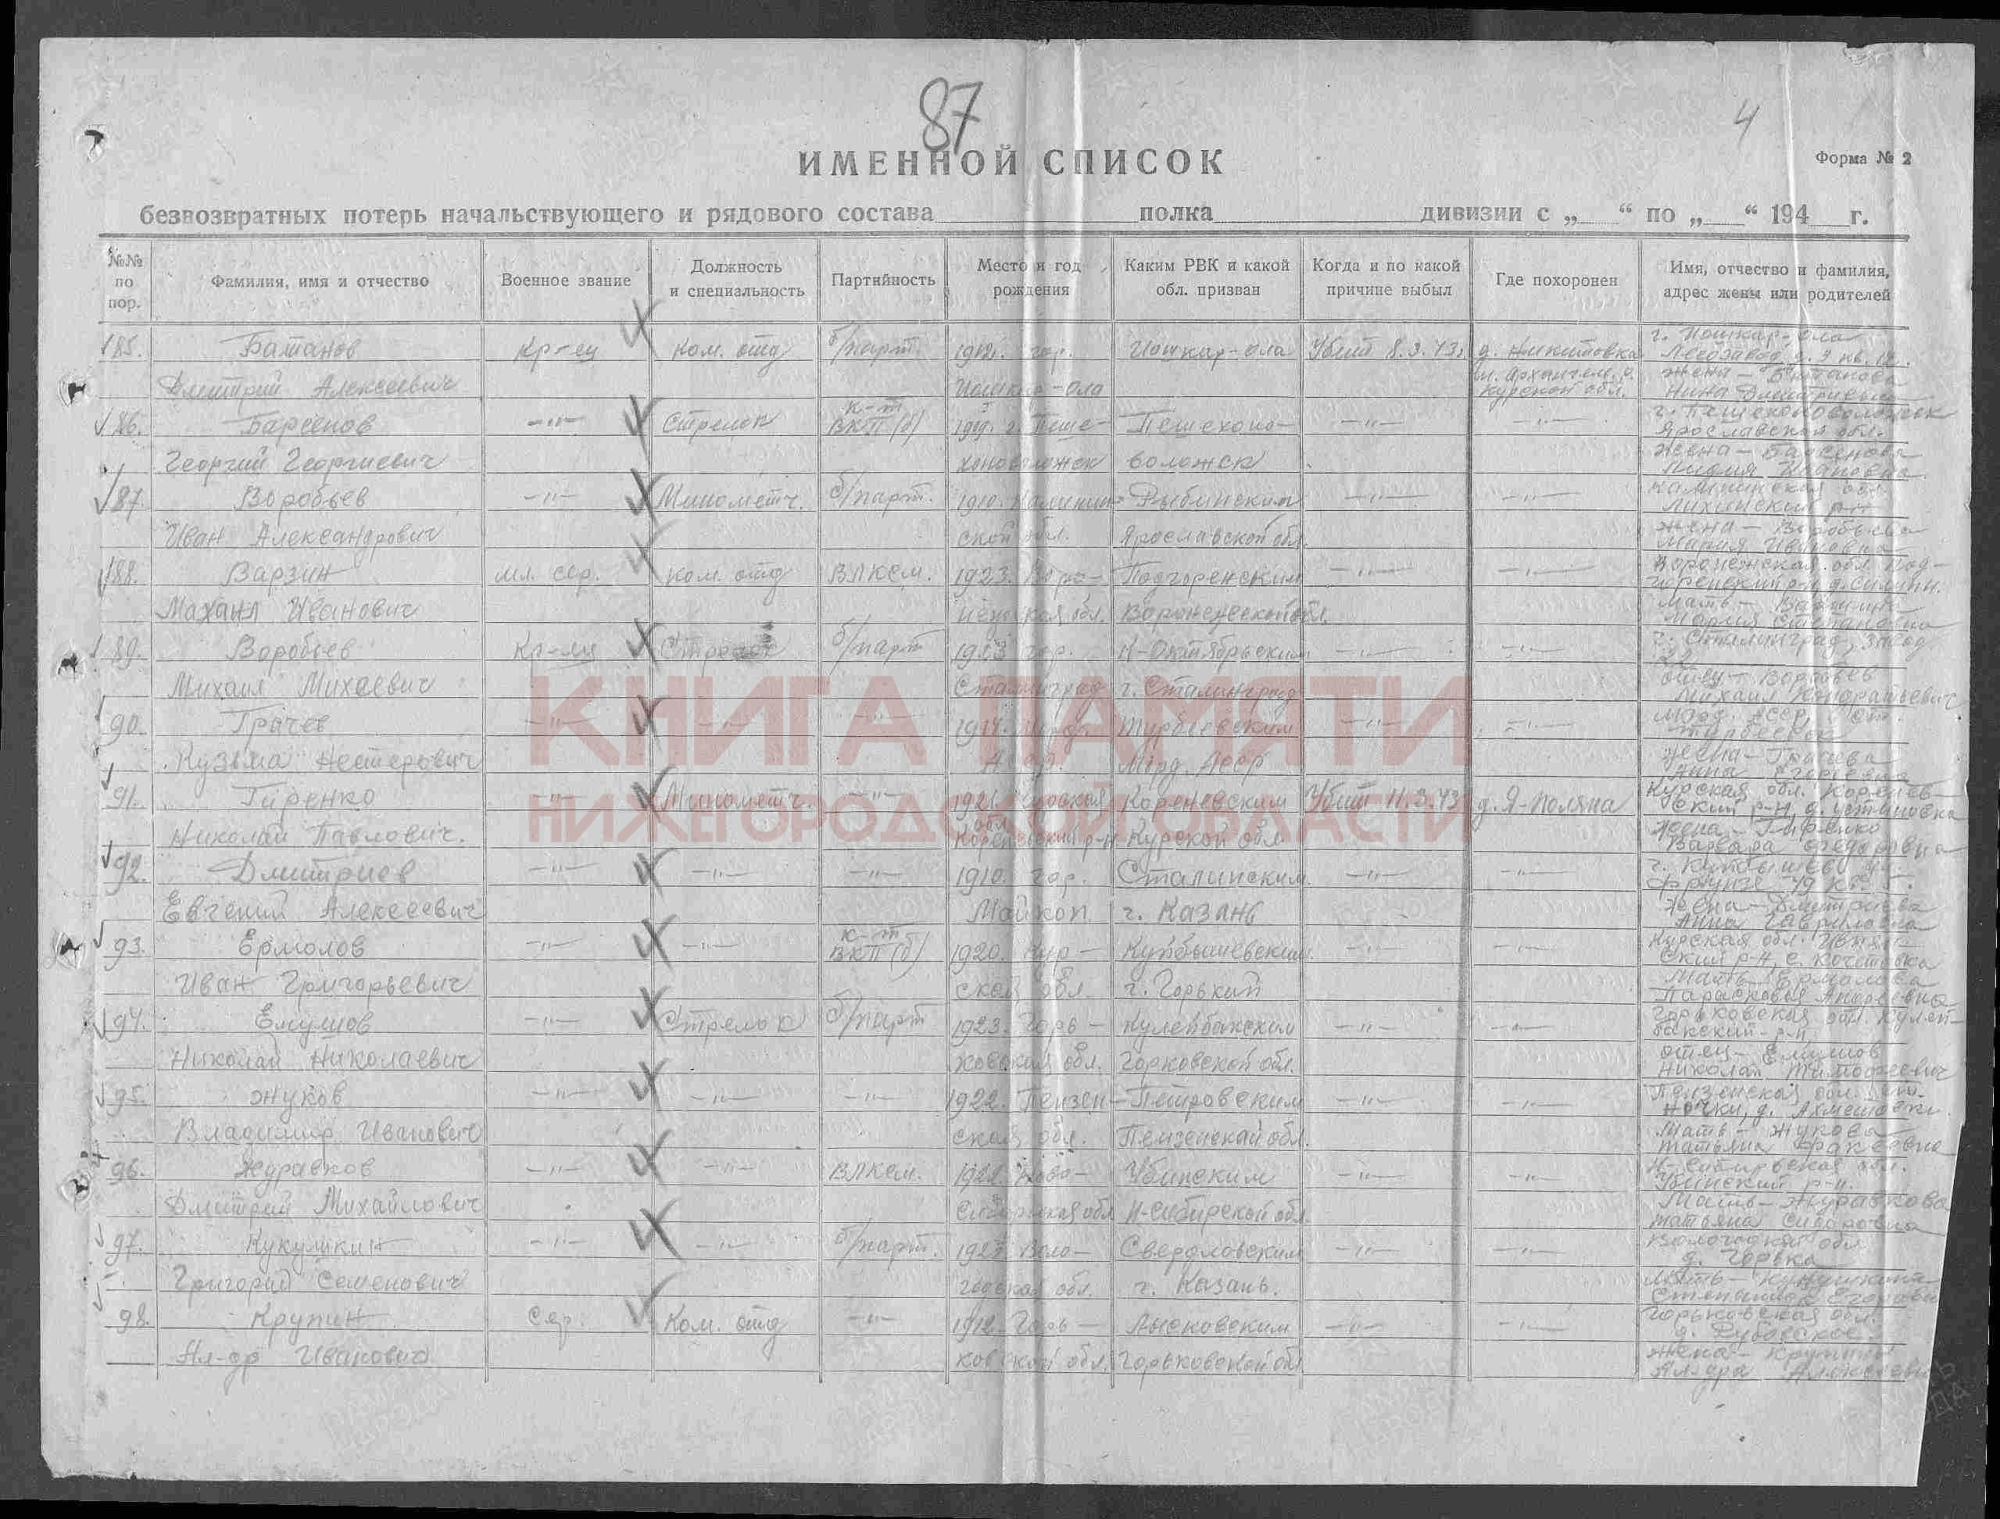 87
4
ИМЕННОЙ СПИСОК
Форма № 2
безвозвратных потерь начальствующего и рядового состава полка дивизии с „ “ по „ “ 194 г.
№№ по пор. Фамилия, имя и отчество Военное звание Должность и специальность Партийность Место и год рождения Каким РВК и какой обл. призван Когда и по какой причине выбыл Где похоронен Имя, отчество и фамилия, адрес жены или родителей
г. Йошкар-Ола
85. Батанов Кр-ец Ком. отд б/парт. 1912. гор. Йошкар-ола Убит 8.3.43. д. Никитовка Лесозавод д. 9 кв. 12.
Дмитрий Алексеевич Йошкар-ола Курской обл. жена - Батанова
Нина Дмитриевна
86. Барсенов —"— Стрелок к-т ВКП(б) 1919. г. Поше- Пошехоно- —"— —"— Ярославской обл.
Георгий Георгиевич хоноволожск воложск жена - Барсенова
87. Воробьев —"— Минометч. б/парт. 1910. Калинин- Рыбинским —"— —"— Калининская обл.
Иван Александрович ской обл. Ярославской обл. жена - Воробьева
Мария Ивановна
88. Варзин мл. сер. Ком. отд ВЛКСМ. 1923. Воро- Подгоренским —"— —"— Воронежская обл. Под-
Махаил Иванович нежская обл. Воронежской обл. Мать -
Мария Степановна
89. Воробьев Кр-ец Стрелок б/парт 1923 гор. К-Октябрьским —"— —"— г. Сталинград, завод
Михаил Михеевич Сталинград г. Сталинград отец - Воробьев
Михаил
90. Грачев —"— —"— —"— Турбеевским —"— —"— Морд. АССР, ст.
Кузьма Нестерович Морд. АССР жена - Грачева
Анна Егорьевна
91. Гиренко —"— Минометч. —"— 1921. Курская обл. Кореневским Убит 11.3.43 д. Я-поляна Курская обл. Коренев-
ский р-н, д. Устиновка
Николай Павлович. Кореневский р-н Курской обл. жена - Гиренко
Варвара Федоровна
92. Дмитриев —"— —"— —"— 1910. гор. Сталинским —"— —"— г. Куйбышев ул.
Фрунзе 49 кв.
Евгений Алексеевич Майкоп г. Казань жена - Дмитриева
Анна Гавриловна
93. Ермолов —"— —"— к-т ВКП(б) 1920. Кур- Куйбышевским —"— —"— Курская обл. Ивнян-
ский р-н, с. Кочетовка
Иван Григорьевич ской обл. г. Горький Мать - Ермолова
Парасковья Андреевна
94. Емушов —"— Стрелок б/парт 1923. Горь- Кулебакским —"— —"— Горьковская обл. Кулеб-
бакский р-н
Николай Николаевич ковская обл. Горковской обл. отец - Емушов
Николай Тимофеевич
95. Жуков —"— —"— —"— 1922. Пензен- Петровским —"— —"— Пензенская обл.
Владимир Иванович ская обл. Пензенской обл. Мать - Жукова
Татьяна
96. Журавков —"— —"— ВЛКСМ. Ново- Убинским —"— —"— Н-Сибирская обл.
Убинский р-н.
Дмитрий Михайлович Сибирская обл Н-Сибирской обл. Мать - Журавкова
Татьяна Сидоровна
97. Кукушкин —"— —"— б/парт. 1923. Воло- Свердловским —"— —"— Вологодская обл
д. Горька
Григорий Семенович годская обл. г. Казань. Мать - Кукушкина
98. Крупин Сер. Ком. отд —"— 1912. Горь- Лысковским —"— —"— Горьковская обл.
Ал-др Иванович ковской обл. Горьковской обл жена - Крупина
Ал-дра
КНИГА ПАМЯТИ
НИЖЕГОРОДСКОЙ ОБЛАСТИ